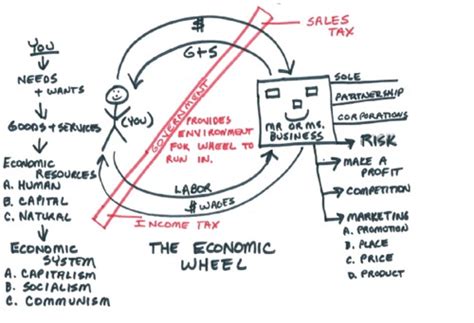 YOU
NEEDS
+ WANTS
GOODS + SERVICES
ECONOMIC
RESOURCES
A. HUMAN
B. CAPITAL
C. NATURAL
ECONOMIC
SYSTEM
A. CAPITALISM
B. SOCIALISM
C. COMMUNISM
$
G+S
(YOU)
GOVERNMENT
PROVIDES
ENVIRONMENT
FOR WHEEL TO
RUN IN.
LABOR
$ WAGES
SALES
TAX
INCOME TAX
THE ECONOMIC
WHEEL
MR OR MS.
BUSINESS
SOLE
PARTNERSHIP
CORPORATIONS
RISK
MAKE A
PROFIT
COMPETITION
MARKETING
A. PROMOTION
B. PLACE
C. PRICE
D. PRODUCT